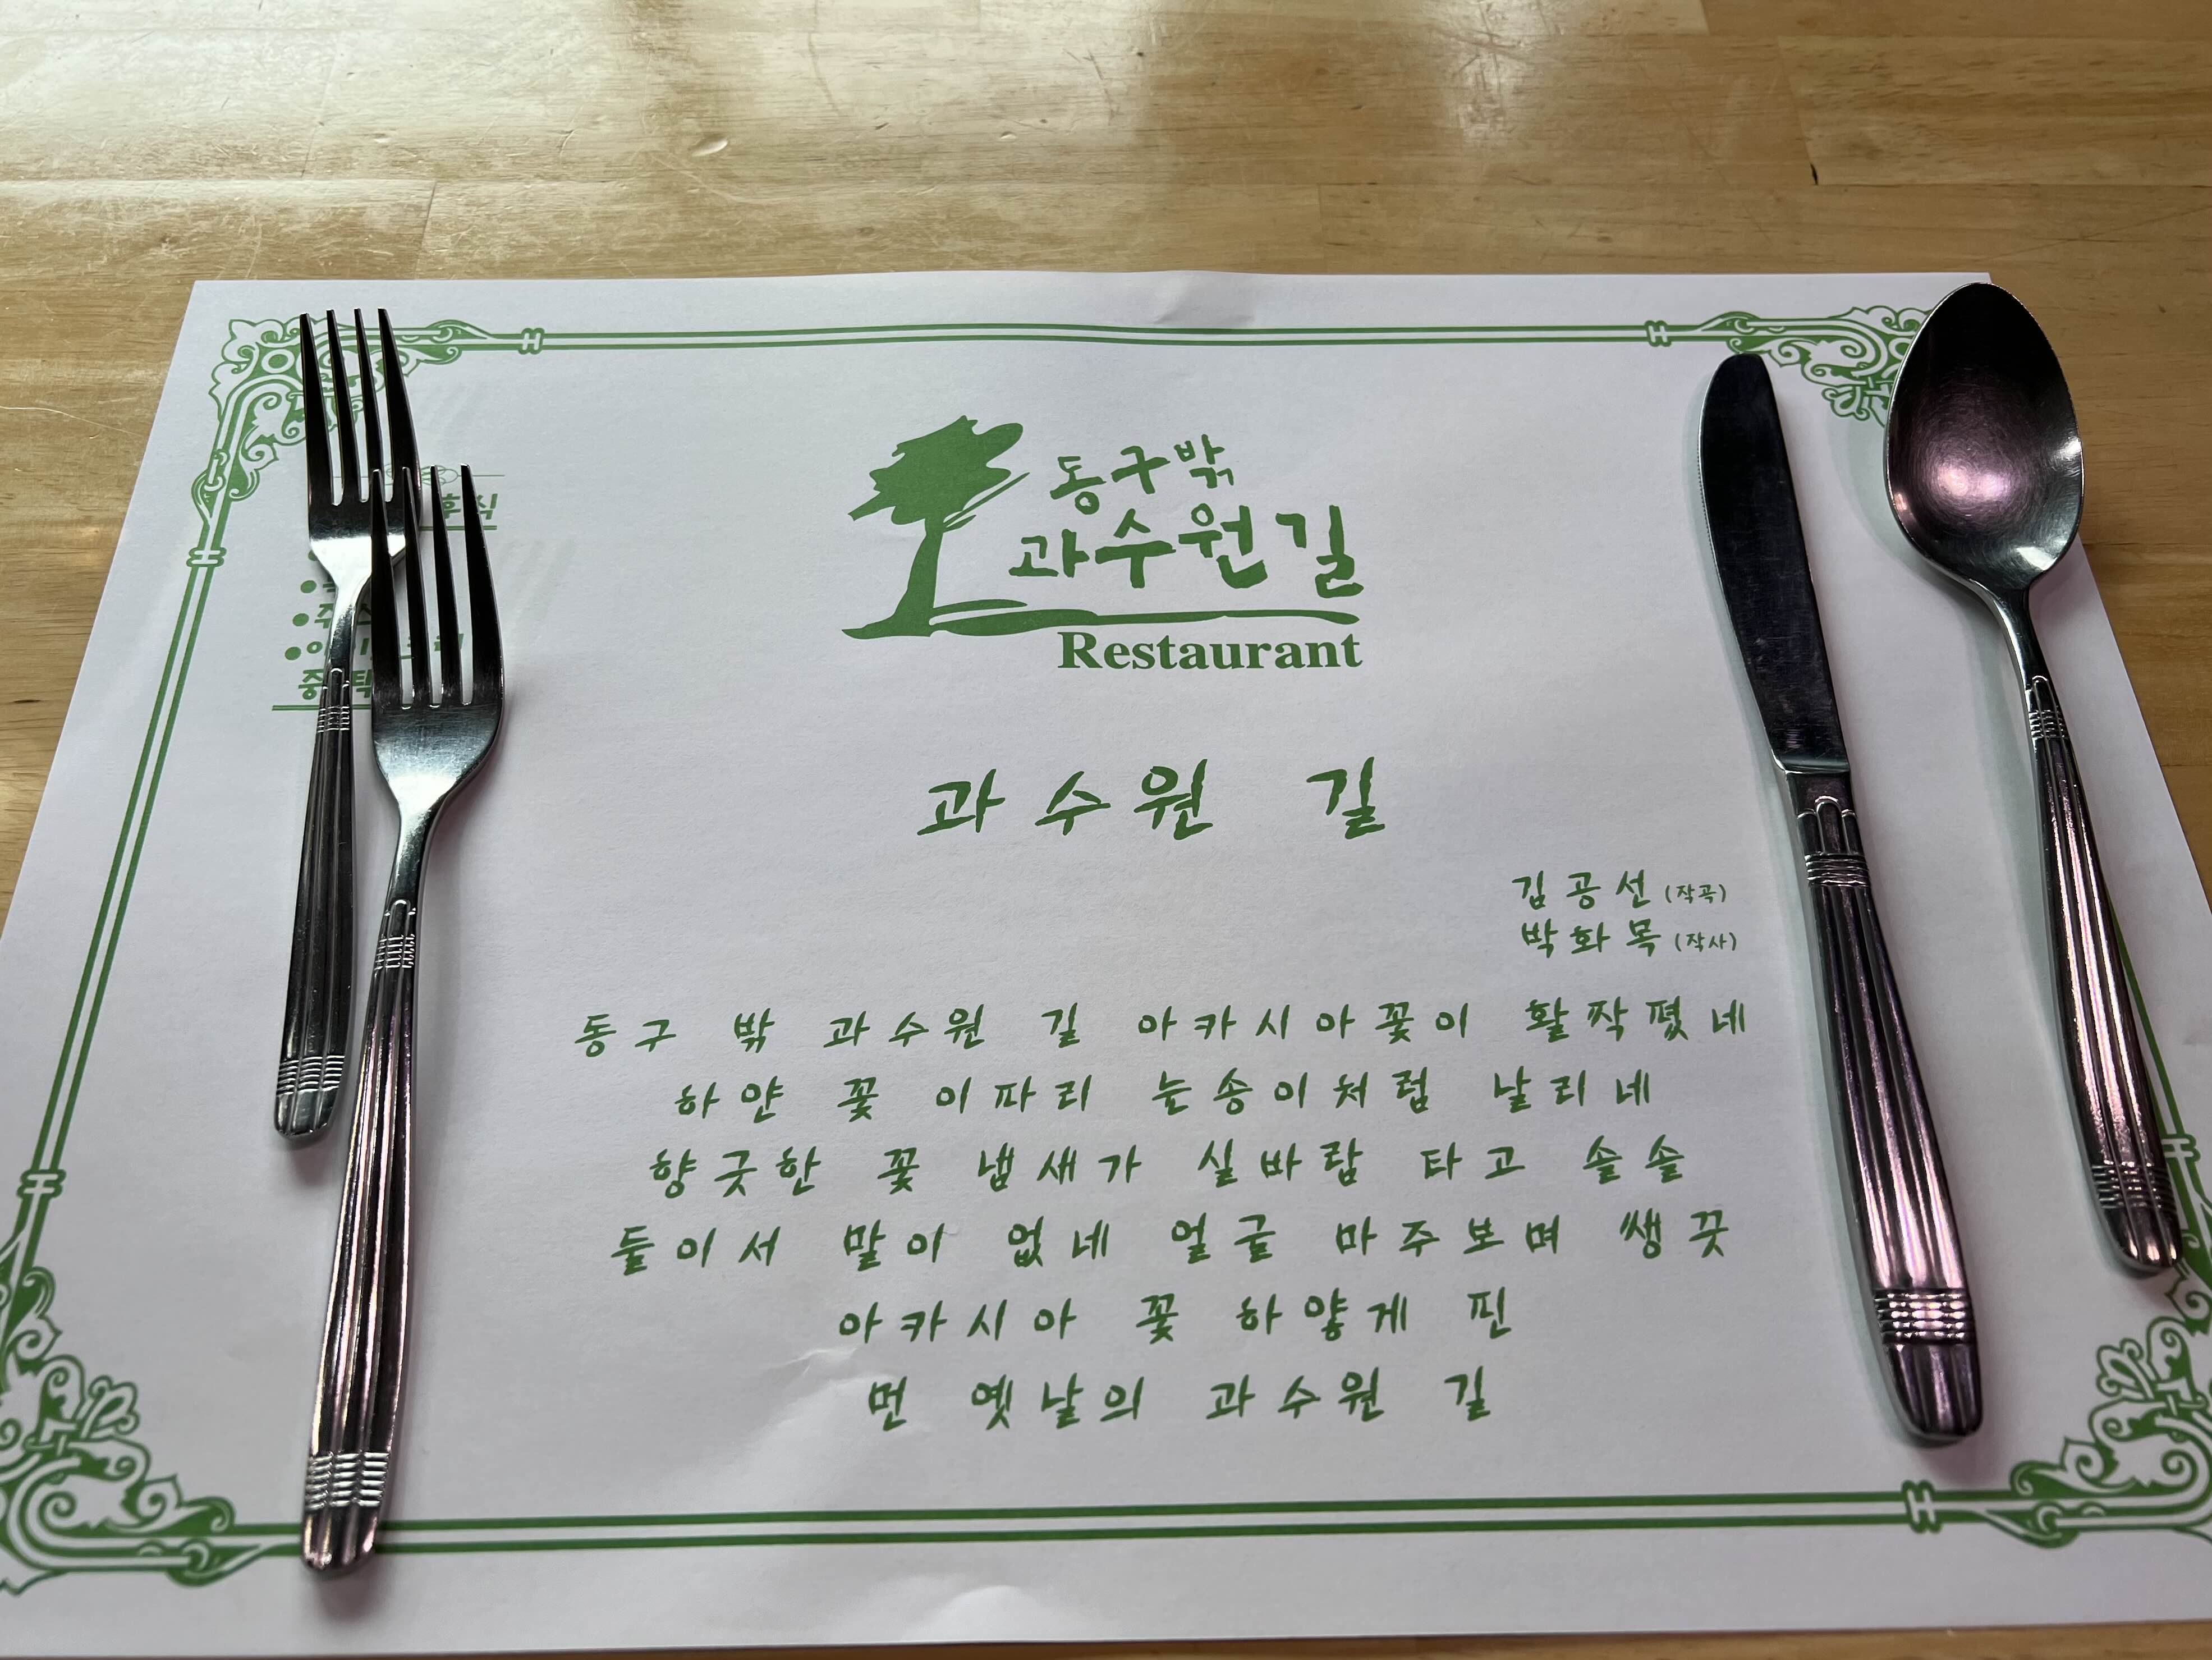 동구밖
과수원길
Restaurant
후식
과수원 길
김공선 (작곡)
박화목 (작사)
동구 밖 과수원 길 아카시아꽃이 활짝폈네
하얀 꽃 이파리 눈송이처럼 날리네
향긋한 꽃 냄새가 실바람 타고 솔솔
둘이서 말이 없네 얼굴 마주보며 쌩끗
아카시아 꽃 하얗게 핀
먼 옛날의 과수원 길